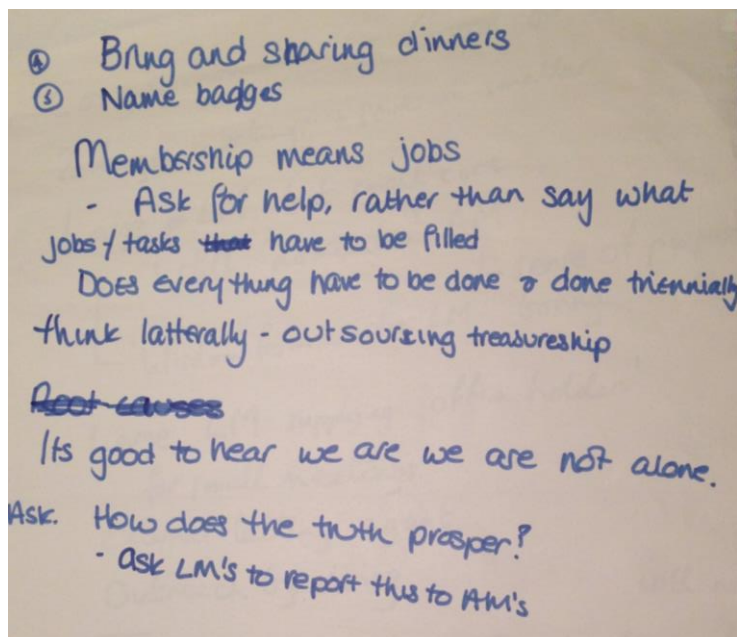 ④ Bring and sharing dinners
⑤ Name badges
Membership means jobs
- Ask for help, rather than say what
jobs / tasks that have to be filled
Does everything have to be done & done triennially
think latterally - outsourcing treasureship
Root causes
Its good to hear we are we are not alone.
Ask. How does the truth prosper?
- ask LM's to report this to AM's